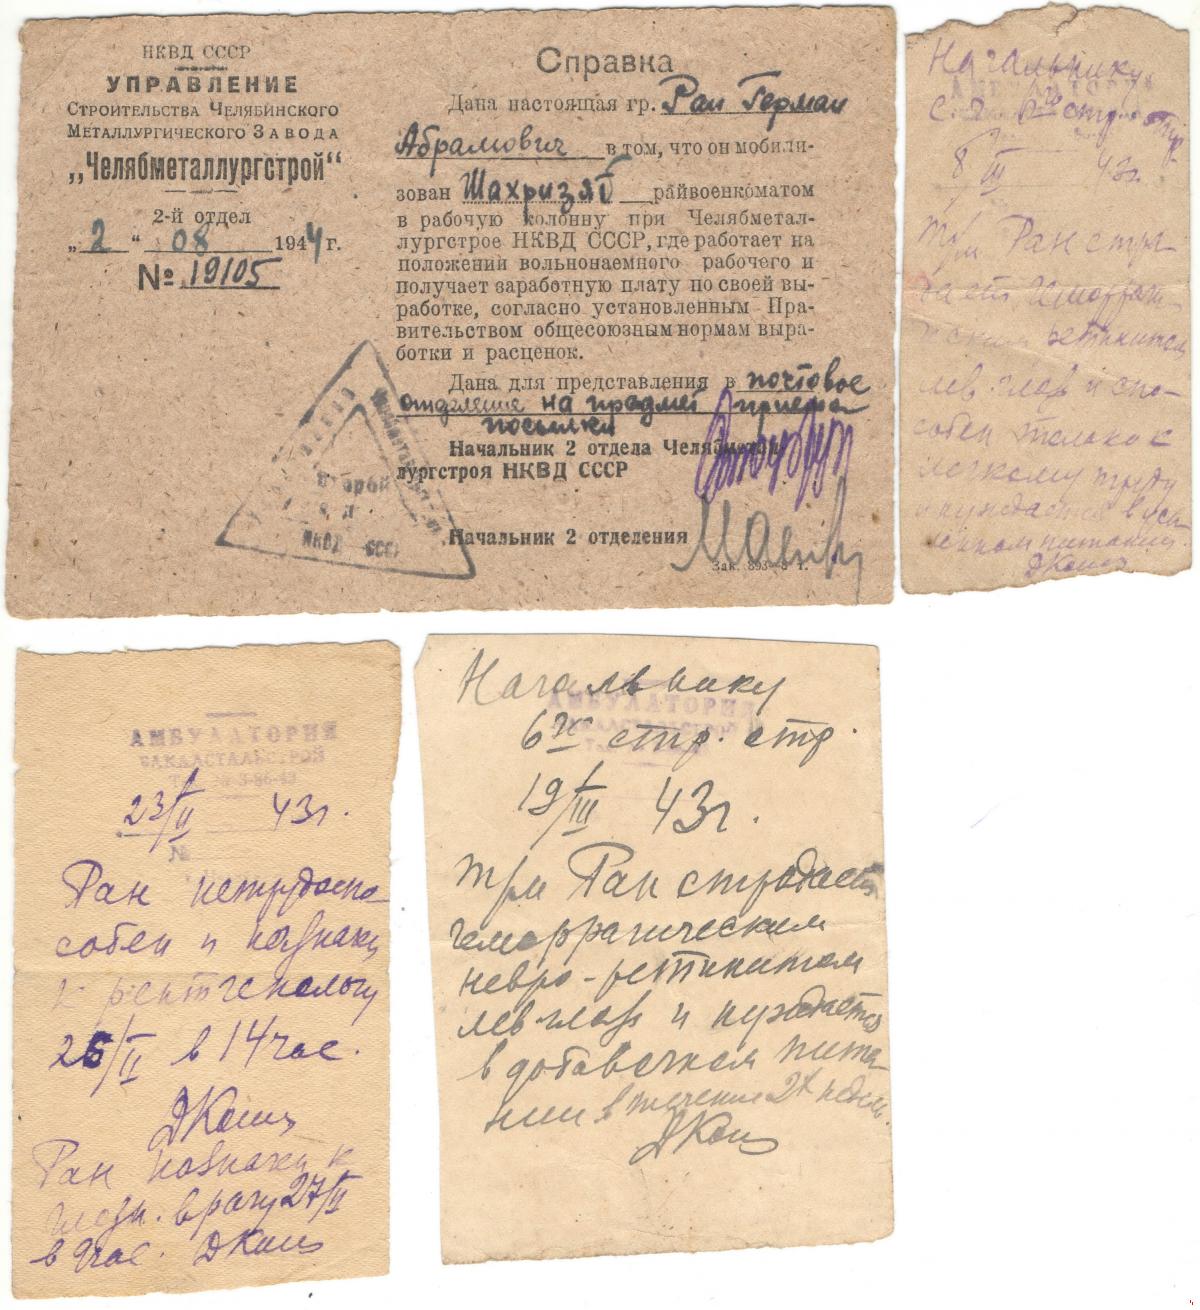 НКВД СССР
УПРАВЛЕНИЕ
Строительства Челябинского
Металлургического Завода
„Челябметаллургстрой“
2-й отдел
„2“ 08 1944 г.
№ 19105
Справка
Дана настоящая гр. Ран Герман
Абрамович в том, что он мобили-
зован Шахризяб райвоенкоматом
в рабочую колонну при Челябметал-
лургстрое НКВД СССР, где работает на
положении вольнонаемного рабочего и
получает заработную плату по своей вы-
работке, согласно установленным Пра-
вительством общесоюзным нормам выра-
ботки и расценок.
Дана для представления в почтовое
отделение на предмет приема
посылки
Начальник 2 отдела Челябметал-
лургстроя НКВД СССР
Начальник 2 отделения
Зак. 893—3 т.
второй
НКВД СССР
Начальнику
АМБУЛАТОРИЯ
стр.
8/III 43г.
т/м Ран стра-
дает геморраг-
ическим ретинитом
лев глаз и спо-
собен только к
легкому труду
и нуждается в уси-
ленном питании.
ДКац
АМБУЛАТОРИЯ
БАКАЛСТАЛЬСТРОЙ
Тел. № 3-86-43
23/II 43г.
№
Ран нетрудоспо
собен и назначен
к рентгенологу
26/II в 14 час.
ДКац
Ран назначен к
глазн. врачу 27/II
в 9 час. ДКац
Начальнику
АМБУЛАТОРИЯ
БАКАЛСТАЛЬСТРОЙ
6го стр. отр.
19/III 43г.
т/м Ран страдает
геморрагическим
невро-ретинитом
лев глаз и нуждается
в добавочном пита-
нии в течение 2х недель.
ДКац